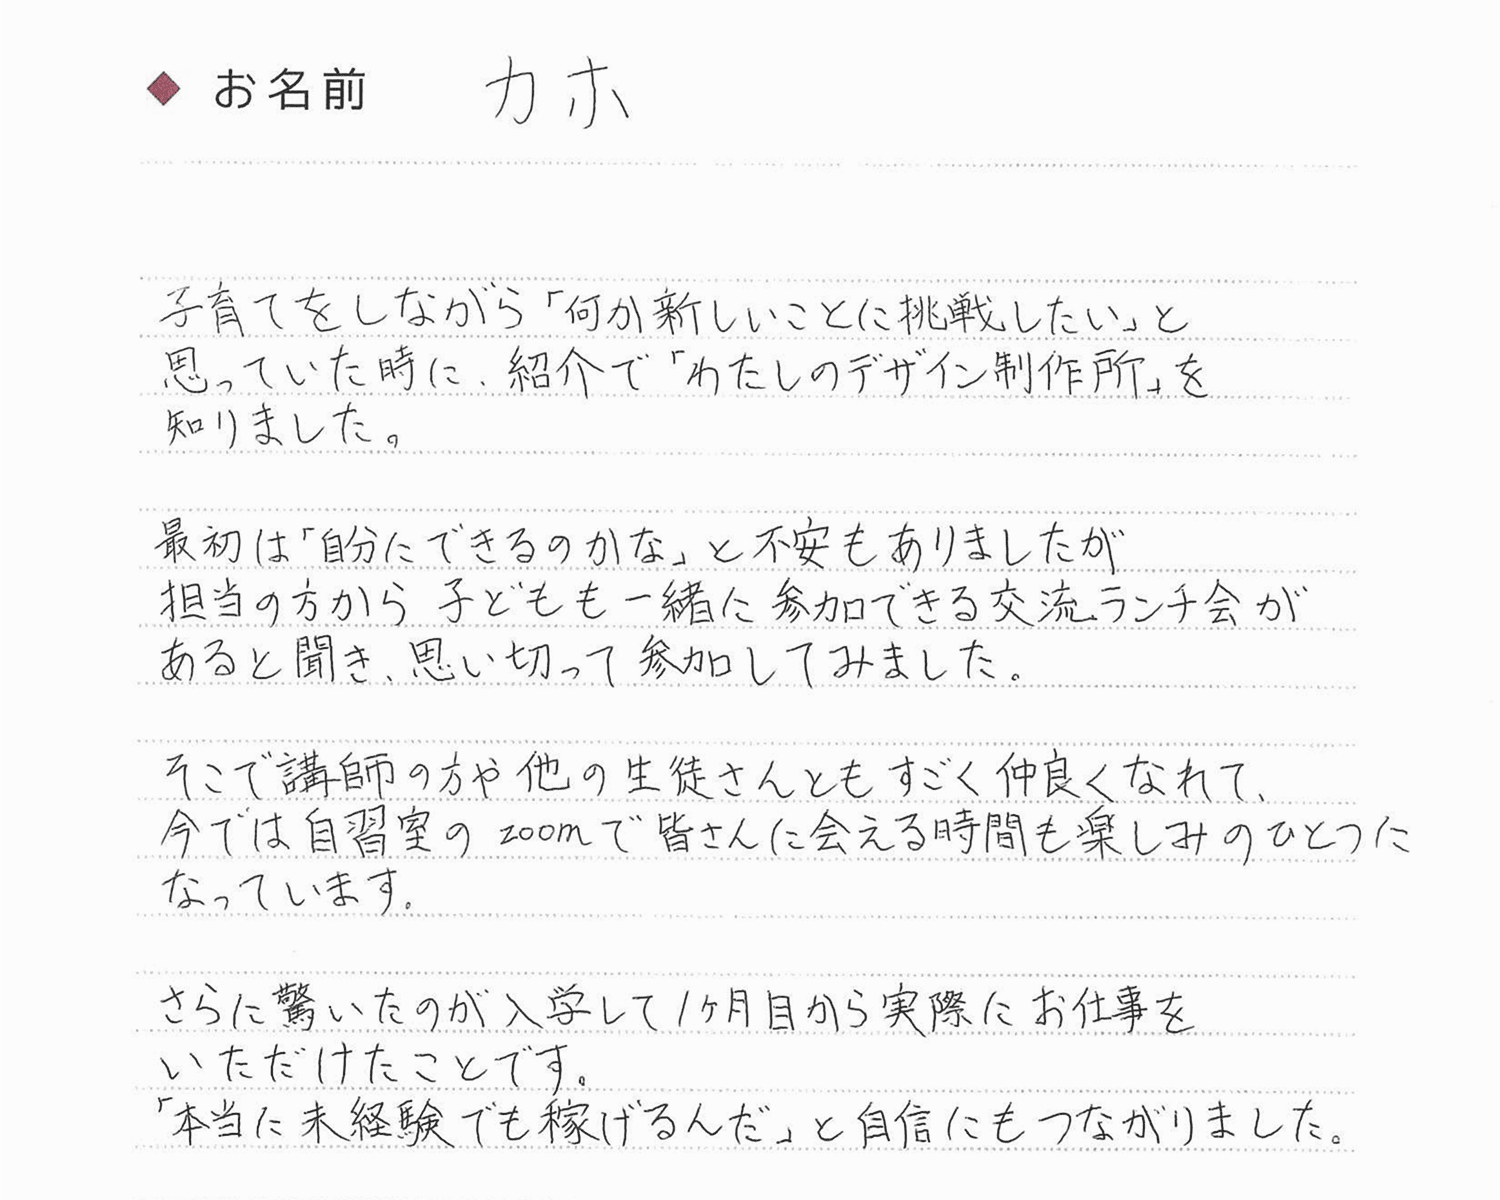 ◆ お名前 カホ
子育てをしながら「何か新しいことに挑戦したい」と
思っていた時に、紹介で「わたしのデザイン制作所」を
知りました。
最初は「自分にできるのかな」と不安もありましたが
担当の方から 子どもも一緒に 参加できる交流ランチ会が
あると聞き、思い切って参加してみました。
そこで講師の方や他の生徒さんともすごく仲良くなれて、
今では自習室の zoomで皆さんに会える時間も楽しみのひとつに
なっています。
さらに驚いたのが入学して1ヶ月目から実際にお仕事を
いただけたことです。
「本当に未経験でも稼げるんだ」と自信にもつながりました。